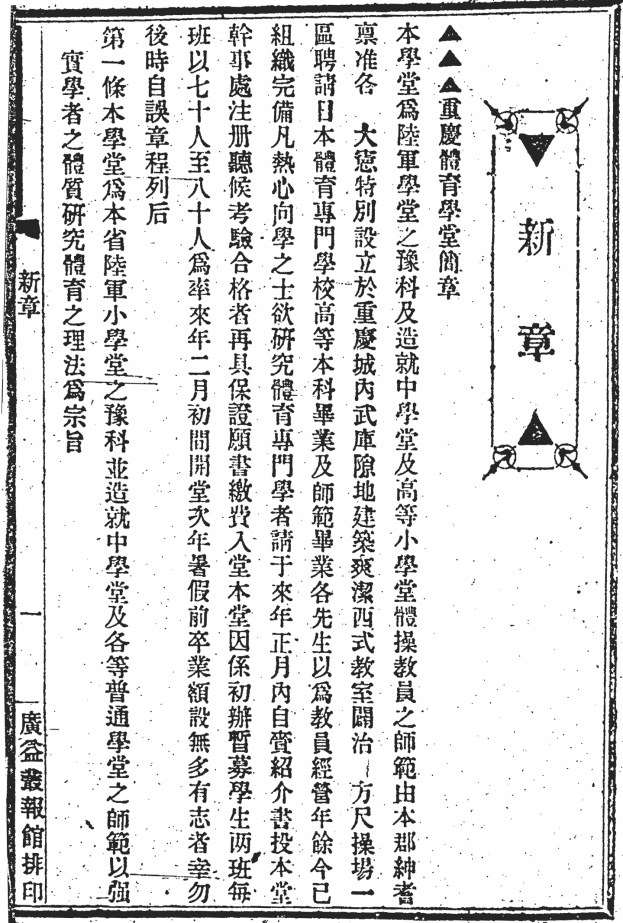 新章
▲▲▲重慶體育學堂簡章
本學堂爲陸軍學堂之豫科及造就中學堂及高等小學堂體操教員之師範由本郡紳耆
稟准各　大憲特別設立於重慶城內武庫隙地建築爽潔西式教室闢治　方尺操場一
區聘請日本體育專門學校高等本科畢業及師範畢業各先生以爲教員經營年餘今已
組織完備凡熱心向學之士欲研究體育專門學者請于來年正月內自賫紹介書投本堂
幹事處注册聽候考驗合格者再具保證願書繳費入堂本堂因係初辦暫募學生两班每
班以七十人至八十人爲率來年二月初間開堂次年暑假前卒業額設無多有志者幸勿
後時自誤章程列后
第一條本學堂爲本省陸軍小學堂之豫科並造就中學堂及各等普通學堂之師範以强
實學者之體質研究體育之理法爲宗旨
新章
一
廣益叢報館排印